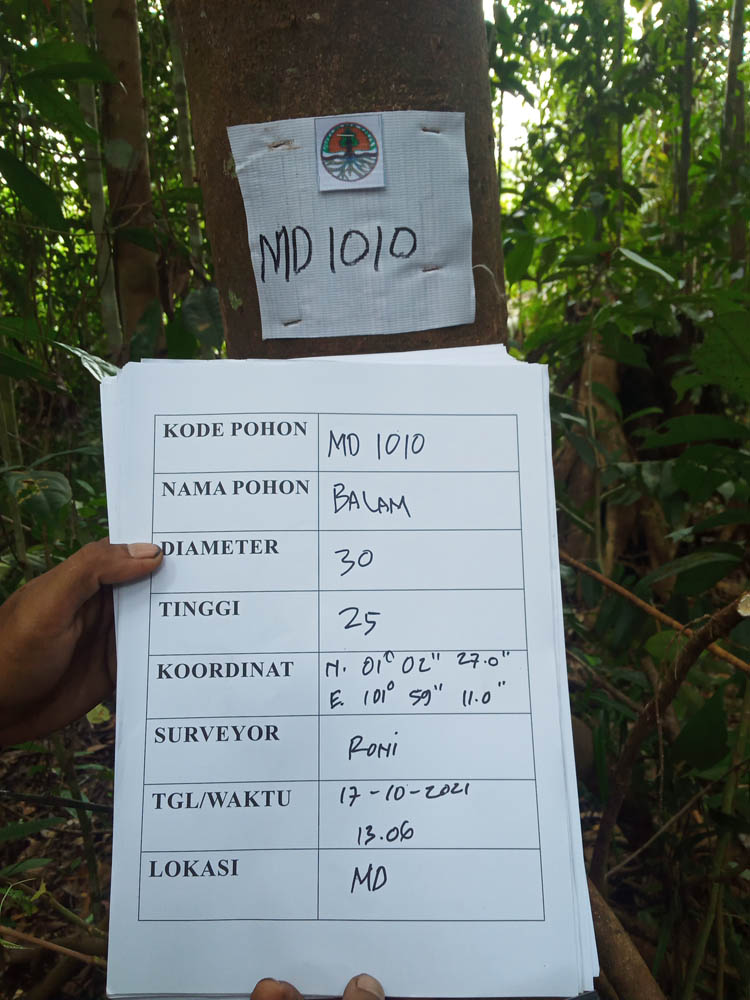 MD 1010
KODE POHON MD 1010
NAMA POHON BALAM
DIAMETER 30
TINGGI 25
KOORDINAT N. 01° 02" 27.0"
E. 101° 59" 11.0"
SURVEYOR RONi
TGL/WAKTU 17-10-2021
13.06
LOKASI MD